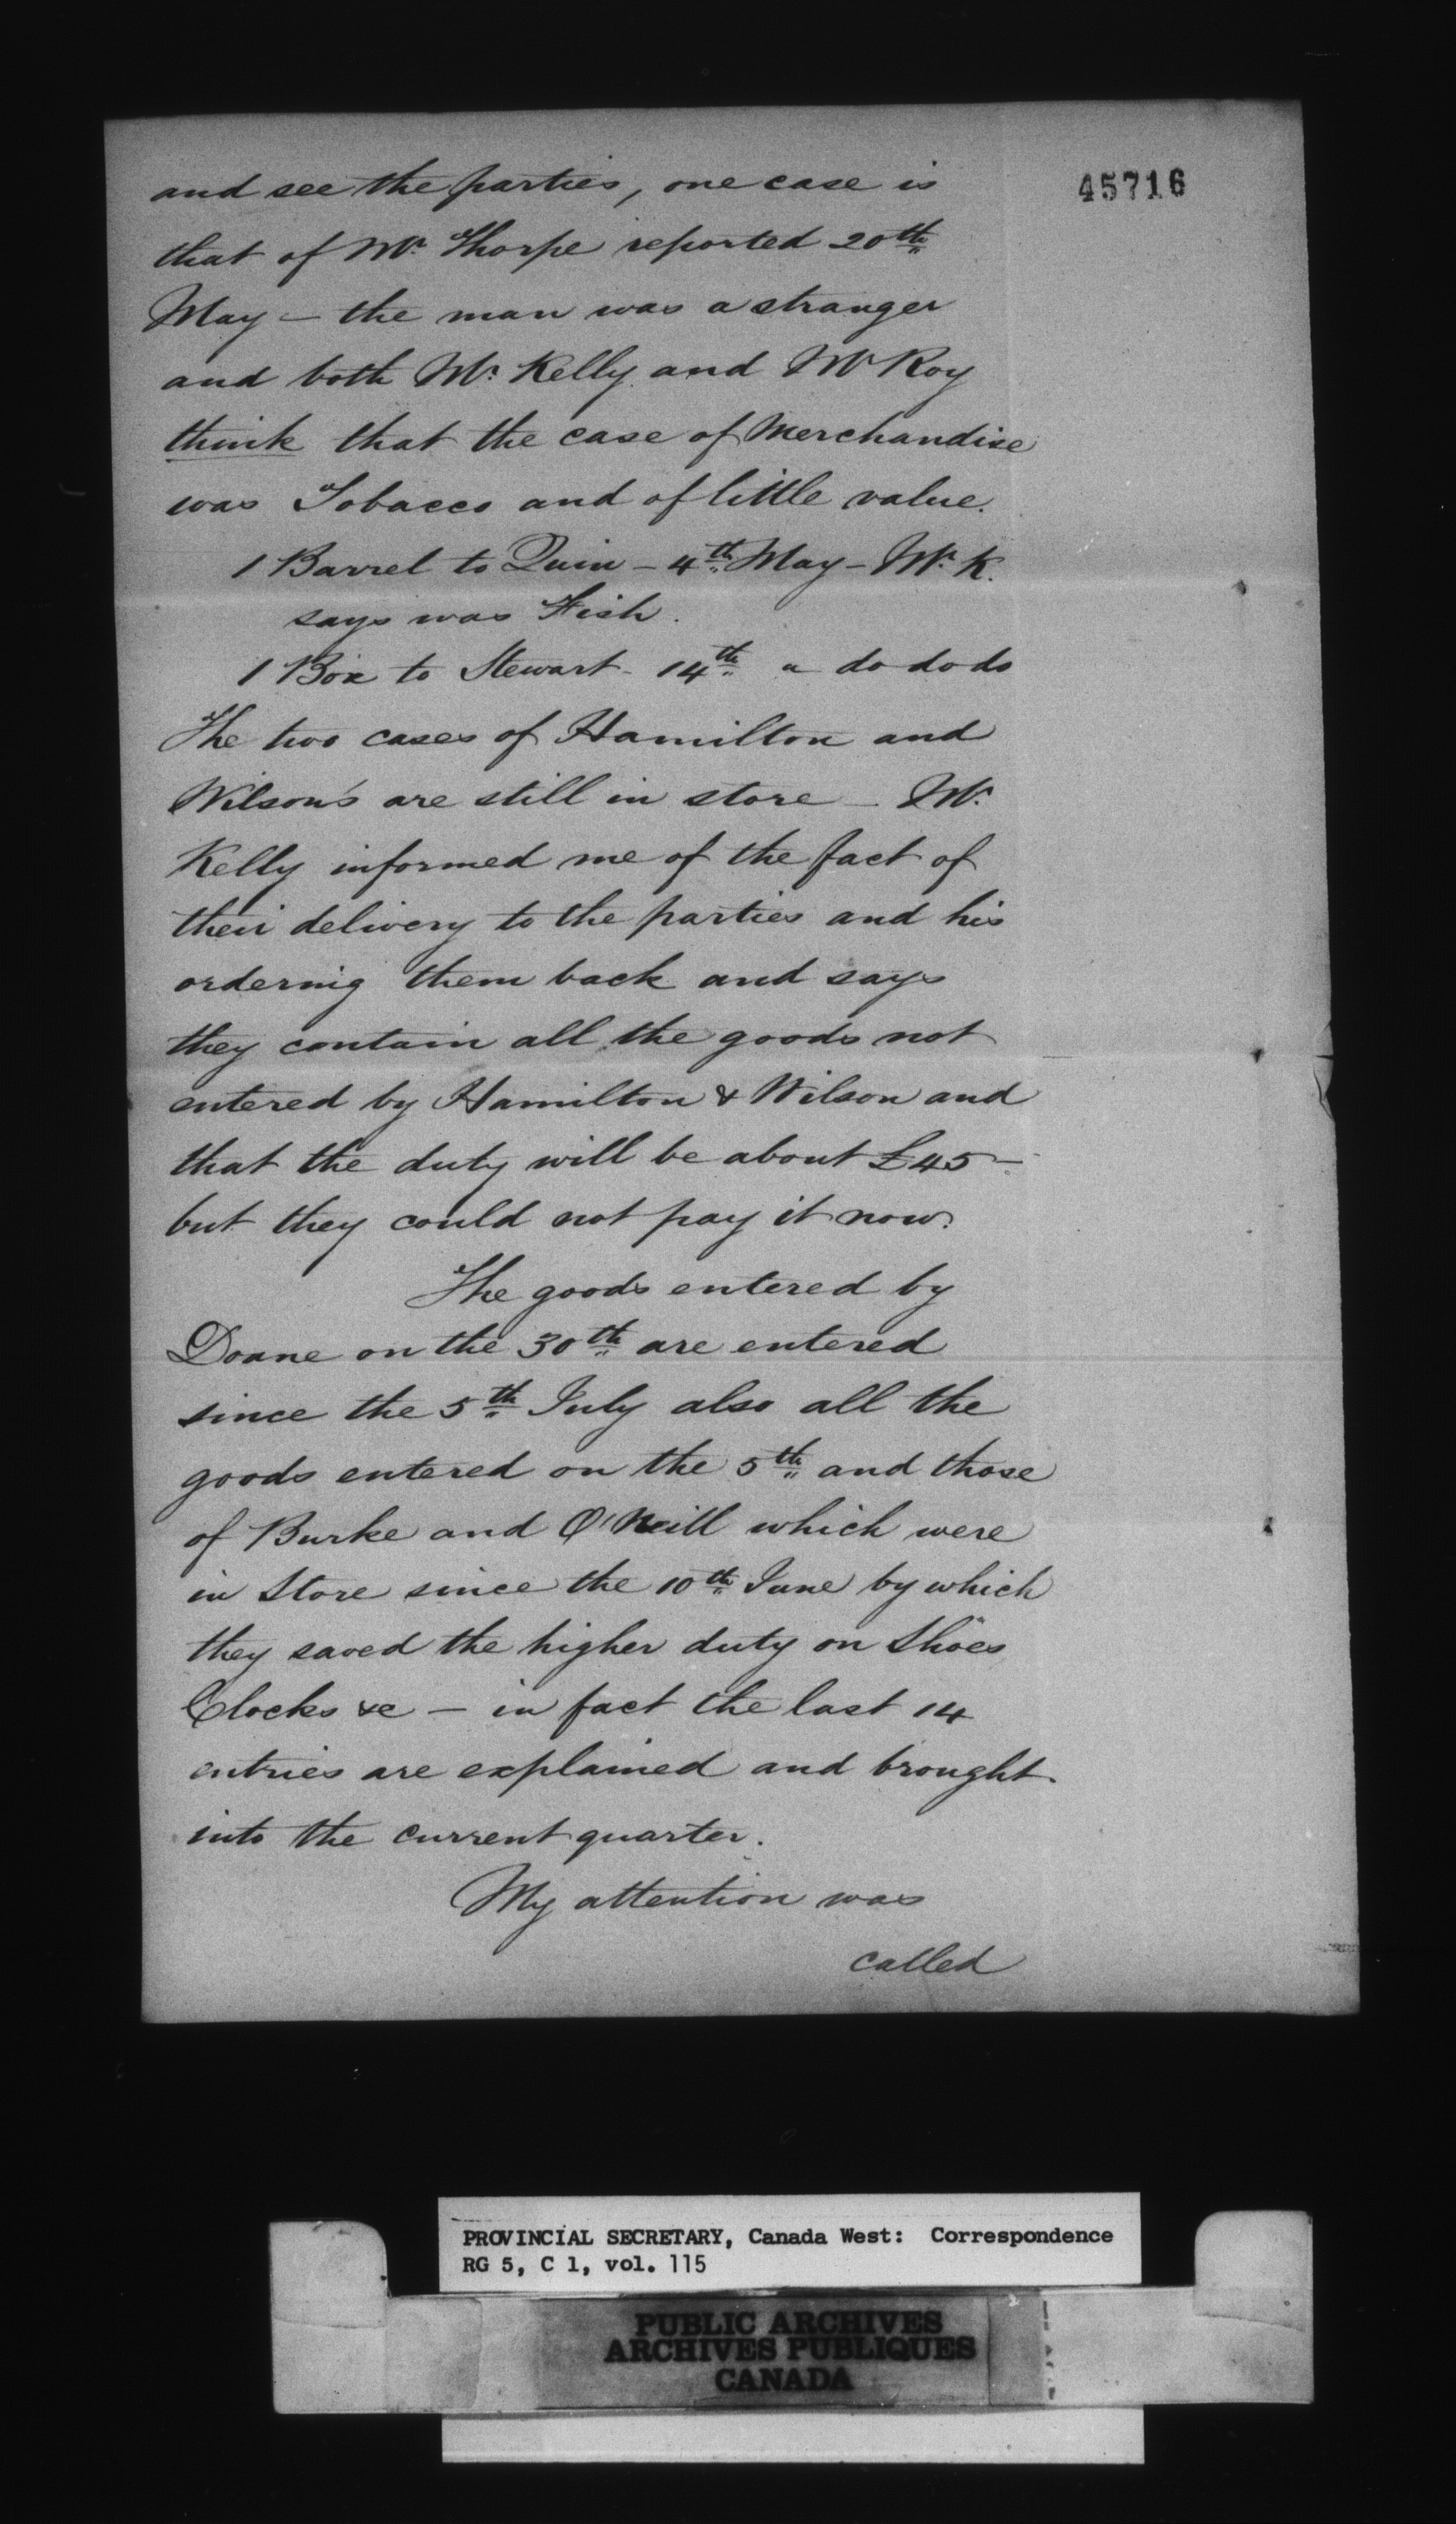 45716
and see the parties, one case is
that of Mr. Thorpe reported 20th
May — the man was a stranger
and both Mr. Kelly and Mr Roy
think that the case of Merchandise
was Tobacco and of little value.
1 Barrel to Quin — 4th May — Mr. K.
says was Fish.
1 Box to Stewart - 14th " do do do
The two cases of Hamilton and
Wilson's are still in store — Mr.
Kelly informed me of the fact of
their delivery to the parties and his
ordering them back and says
they contain all the goods not
entered by Hamilton & Wilson and
that the duty will be about £45 —
but they could not pay it now.
The goods entered by
Doane on the 30th are entered
since the 5th July also all the
goods entered on the 5th and those
of Burke and O'Neill which were
in Store since the 10th June by which
they saved the higher duty on Shoes
Clocks &c — in fact the last 14
entries are explained and brought
into the current quarter.
My attention was
called
PROVINCIAL SECRETARY, Canada West: Correspondence
RG 5, C 1, vol. 115
PUBLIC ARCHIVES
ARCHIVES PUBLIQUES
CANADA